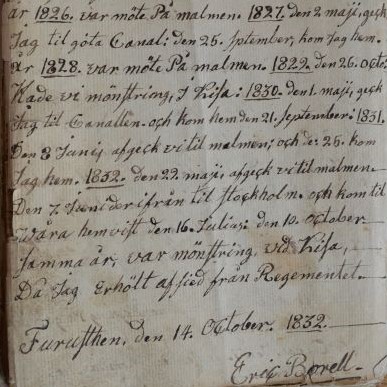 år 1826. var möte På malmen. 1827. den 2 maji, geck
Jag til göta Canal: den 25. September, kom Jag hem.
År 1828. var möte På malmen. 1829. den 26. Octo:
Hade vi mönstring, I Kisa: 1830. den 1. maji, geck
Jag til Canallen. och kom hem den 21. September. 1831.
Den 3 Junij afgeck vi til malmen; och de: 25. kom
Jag hem. 1832. den 22. maji, afgeck vi til malmen.
Den 7. Juni derifrån til Stockholm. och kom til
Wara hemvist den 16. Julius; den 10. October
samma år, var mönstring vid Kisa,
Då Jag Erhölt afsied från Regementet.
Furusthen. den 14. October. 1832.
Eric Borell.